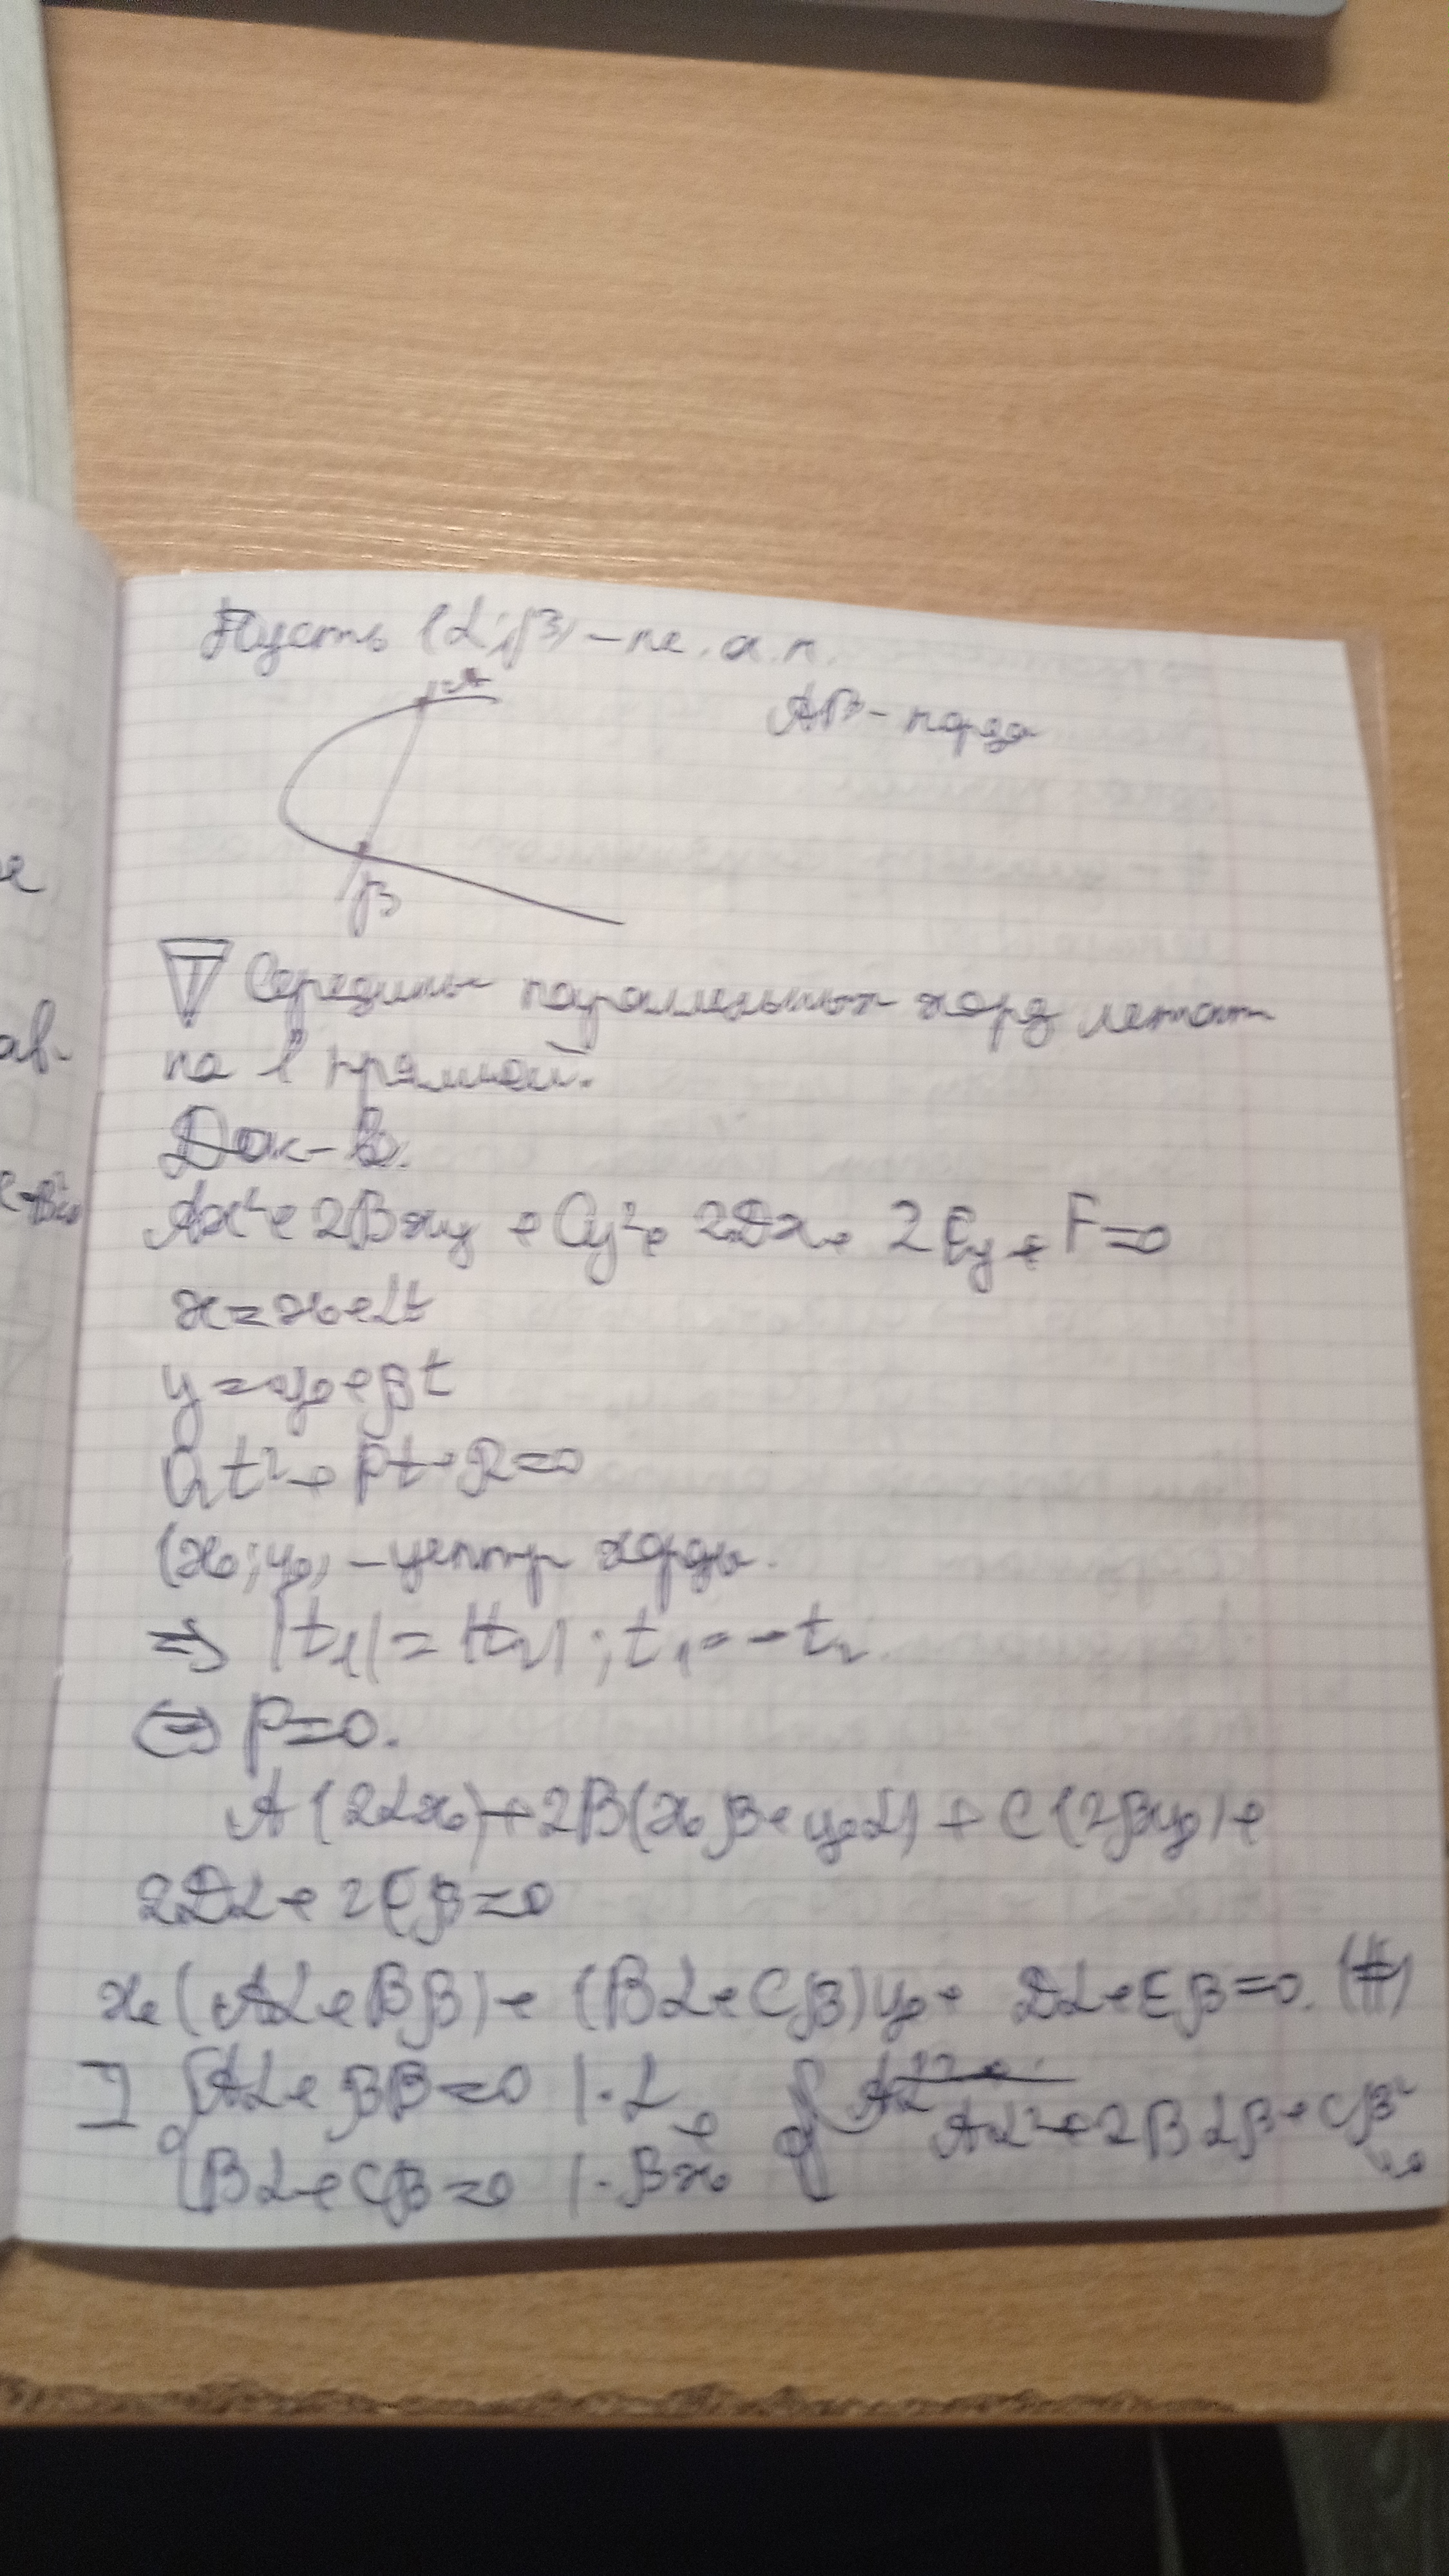 Пусть (α; β) – не а.н.
A
AB – хорда
B
T Середины параллельных хорд лежат
на 1 прямой.
Док-в.
Ax²+2Bxy + Cy²+ 2Dx+ 2Ey + F=0
x=x₀+αt
y=y₀+βt
Qt²+ Pt+R=0
(x₀; y₀) – центр хорды.
⇒ |t₁|=|t₂| ; t₁=-t₂.
⇔ P=0.
A(2αx₀)+2B(x₀β+y₀α) + C(2βy₀)+
2Dα+2Eβ=0
x₀(Aα+Bβ)+ (Bα+Cβ)y₀+ Dα+Eβ=0. (#)
] {Aα+βB=0 |·α
Aα²+2Bαβ+Cβ²
Bα+Cβ=0 |·β
=0